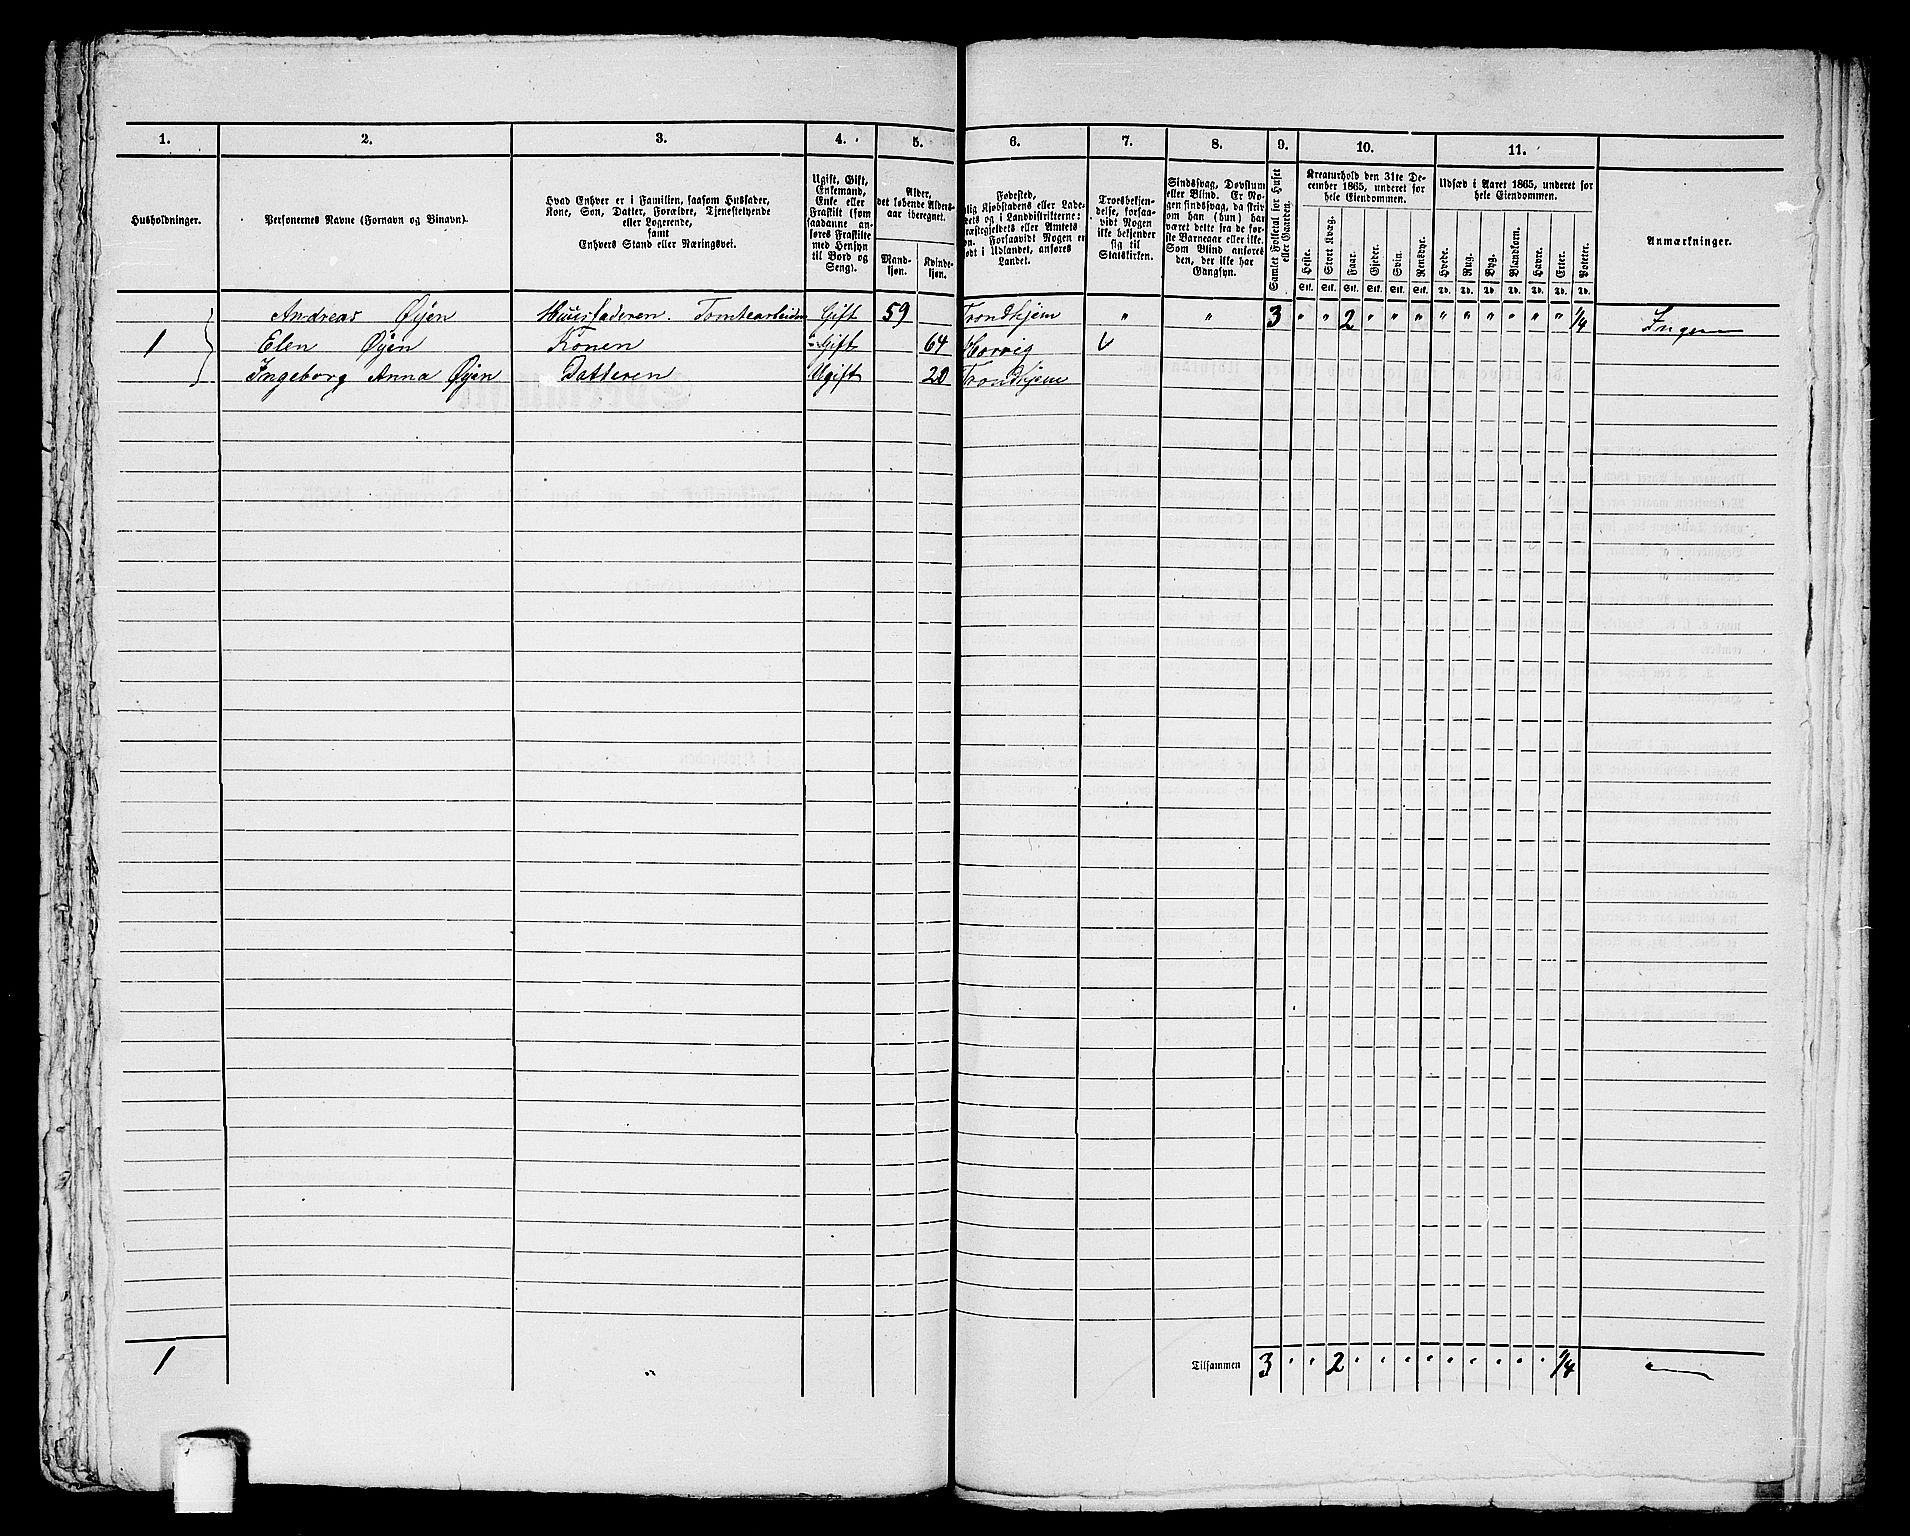 1. 2. 3. 4. 5. 6. 7. 8. 9. 10. 11.
Husholdninger.
Personernes Navne (Fornavn og Binavn).
Hvad Enhver er i Familien, saasom Husfader,
Kone, Søn, Datter, Forældre, Tjenestetyende
eller Logerende,
samt
Enhvers Stand eller Næringsvei.
Ugift, Gift,
Enkemand,
Enke eller
Fraskilt (som
saadanne an-
føres Fraskilte
med Hensyn
til Bord og
Seng).
Alder,
det løbende Alders-
aar iberegnet.
Mand-
kjøn.
Kvinde-
kjøn.
Fødested,
lig Kjøbstadens eller Lade-
dets og i Landdistrikterne:
æstegjeldets eller Amtets
vn. Forsaavidt Nogen er
ødt i Udlandet, anføres
Landet.
Troesbekjen-
delse, forsaa-
vidt Nogen
ikke bekjender
sig til
Statskirken.
Sindssvag, Døvstum
eller Blind. Er No-
gen sindssvag, da skriv
om han (hun) har
været dette fra de før-
ste Barneaar eller ikke.
Som Blind anføres
den, der ikke har
Gangsyn.
Samlet Folketal for Huset
eller Gaarden.
Kreaturhold den 31te De-
cember 1865, underet for
hele Eiendommen.
Heste. Stort Kvæg. Faar. Gjeder. Svin. Rensdyr.
Stk. Stk. Stk. Stk. Stk. Stk.
Udsæd i Aaret 1865, underet for
hele Eiendommen.
Hvede. Rug. Byg. Blandkorn. Havre. Erter. Poteter.
Td. Td. Td. Td. Td. Td. Td.
Anmærkninger.
Andreas Øyen Huusfaderen. Tomtearbeider Gift 59 Trondhjem " " 3 " " 2 " " " " " " " " " 1/4 Ingen
1 Elen Øyen Konen Gift 64 Horvig
Ingeborg Anna Øyen Datteren Ugift 20 Trondhjem
1 Tilsammen 3 " " 2 " " " " " " " " " 1/4